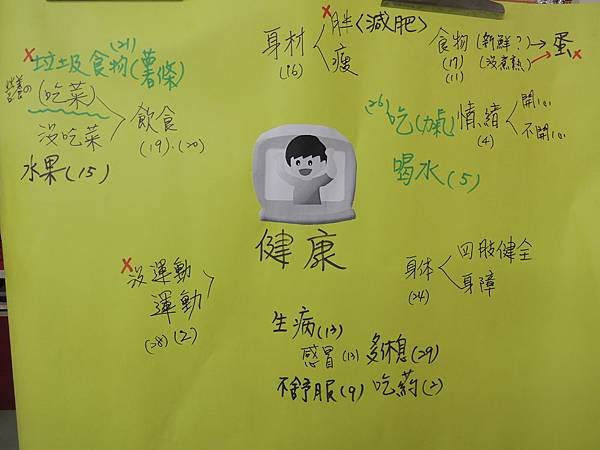 x垃圾食物(21)(薯條)
營養の(吃菜)
沒吃菜
飲食
(19)、(20)
水果(15)
身材
(16)
x胖〈減肥〉
瘦
食物(新鮮?)→蛋x
(17)(沒煮熟)
(11)
(26)吃(力氣)
情緒
(4)
開心
不開心
喝水(5)
健康
x沒運動
運動
(28)(2)
身体
(24)
四肢健全
身障
生病(13)
感冒(13)多休息(29)
不舒服(9)吃药(2)